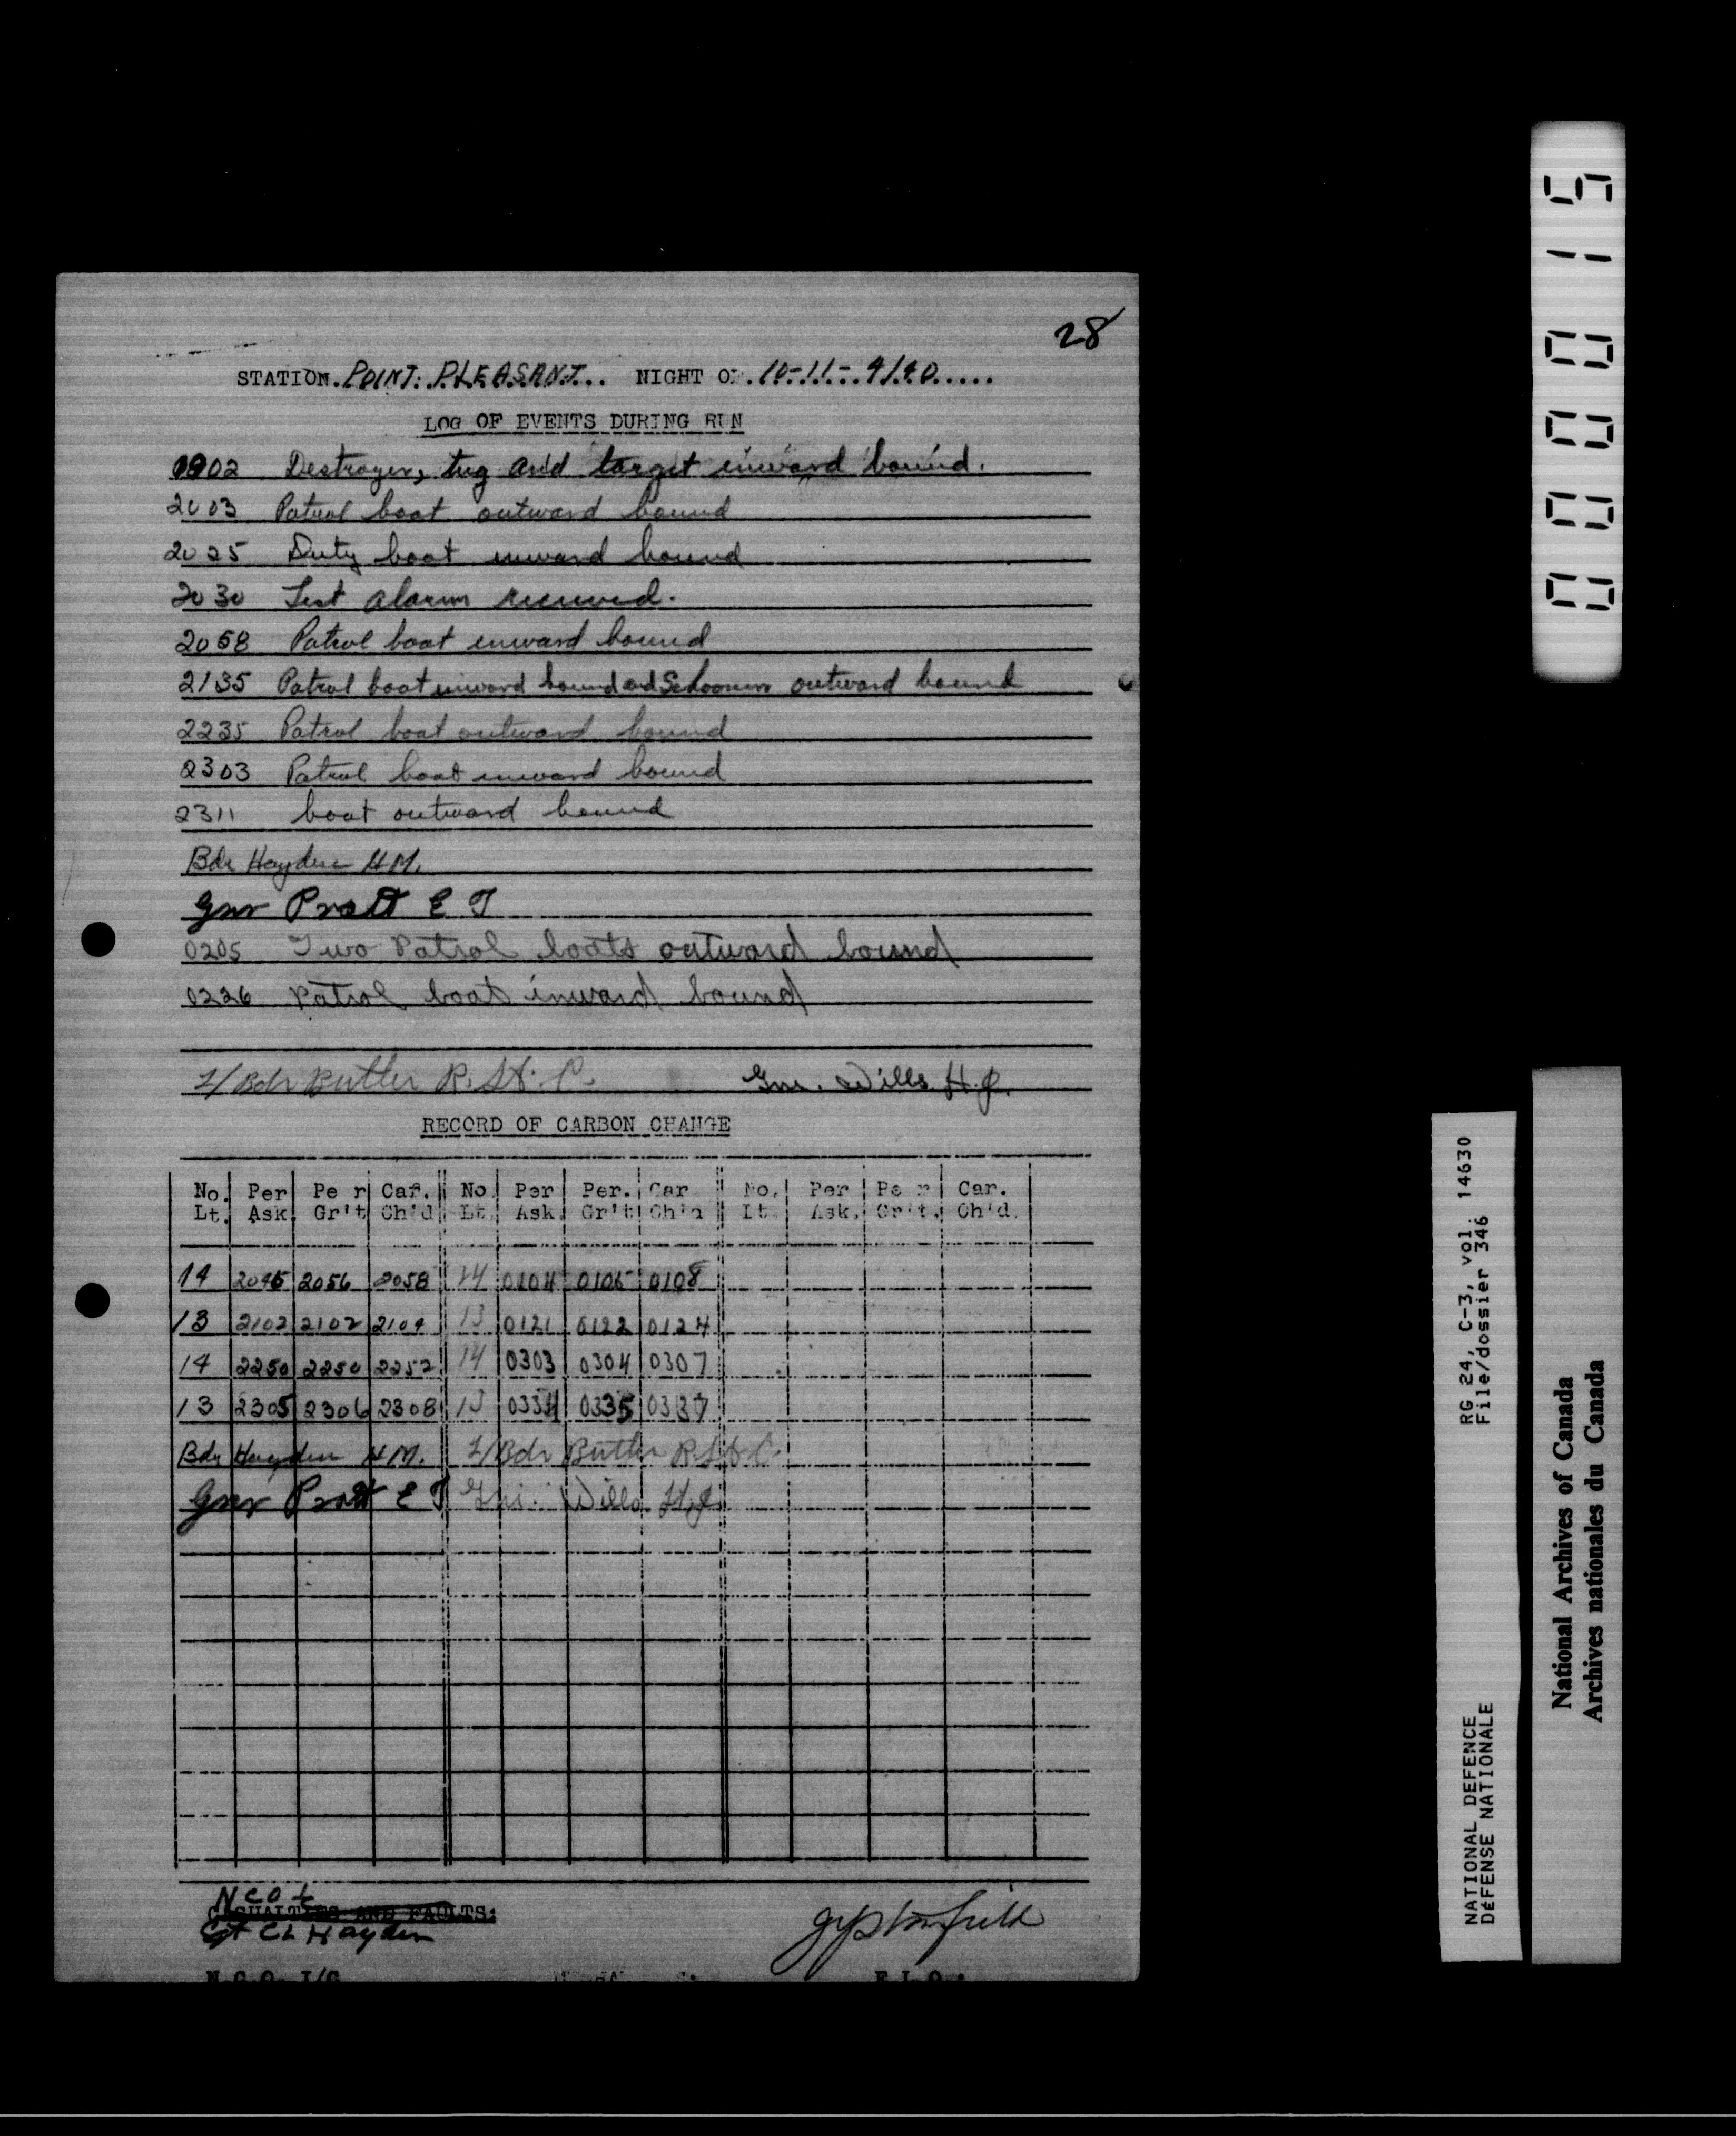 28
STATION. POINT. PLEASANT... NIGHT OF. 10-11-4/40.....
LOG OF EVENTS DURING RUN
1902 Destroyer, tug and target inward bound.
2003 Patrol boat outward bound
2025 Duty boat inward bound
2030 Test alarm received.
2058 Patrol boat inward bound
2135 Patrol boat inward bound and Schooner outward bound
2235 Patrol boat outward bound
2303 Patrol boat inward bound
2311 boat outward bound
Bdr Hayden H.M.
Gnr Pratt E T
0205 Two Patrol boats outward bound
0226 Patrol boat inward bound
L/Bdr Butler R. St. C. Gnr. Wills H.J.
RECORD OF CARBON CHANGE
No. Per Pe r Car. No Per Per. Car No. Per Pe r Car.
Lt. Ask. Gr't Ch'd Lt. Ask. Gr't Ch'd Lt. Ask. Gr't. Ch'd.
14 2045 2056 2058 14 0104 0105 0108
13 2102 2102 2104 13 0121 0122 0124
14 2250 2250 2252 14 0303 0304 0307
13 2305 2306 2308 13 0334 0335 0337
Bdr Hayden H.M. L/Bdr Butler R. St. C.
Gnr Pratt E T Gnr. Wills. H.J.
NCO i/c
CASUALTIES AND FAULTS:
Sgt CL Hayden
N.C.O. I/C E.L.O.:
000015
RG 24, C-3, vol. 14630
File/dossier 346
NATIONAL DEFENCE
DÉFENSE NATIONALE
National Archives of Canada
Archives nationales du Canada